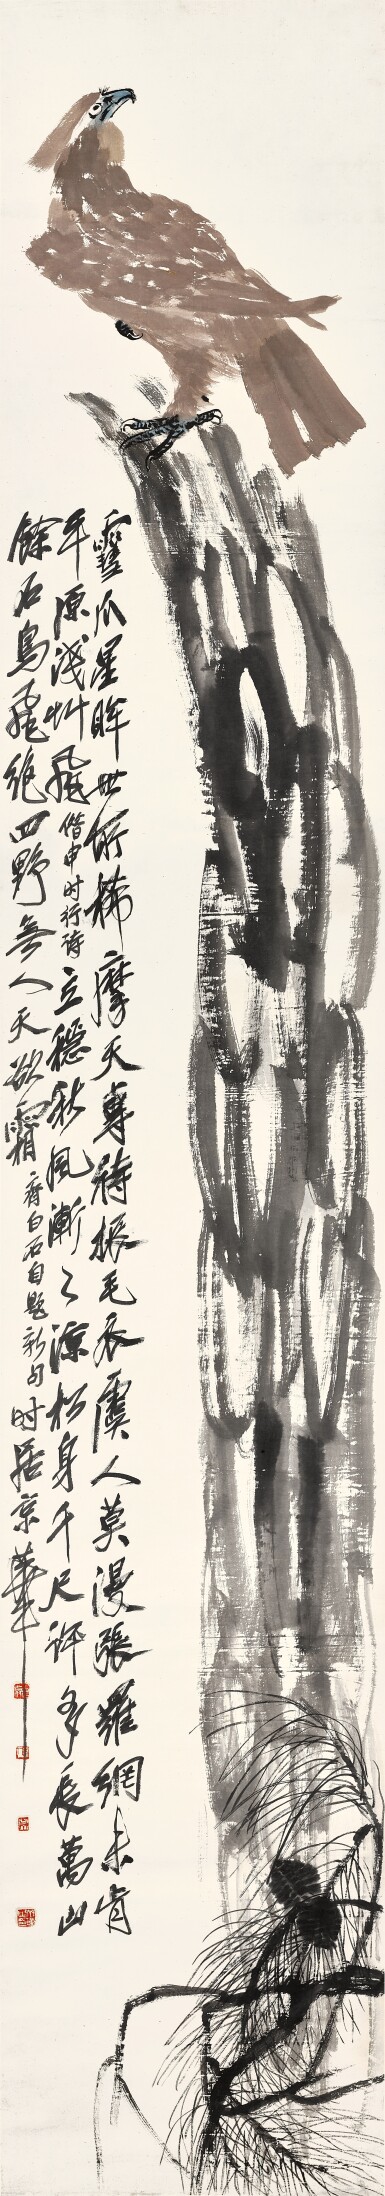 靈爪星眸世所稀摩天專待振毛衣虞人莫漫張羅網未肯
平原淺草飛借申時行詩立穩秋風漸々涼松身千尺許多長萬山
餘石鳥飛絕四野無人天欲霜齊白石自題新句時居京華